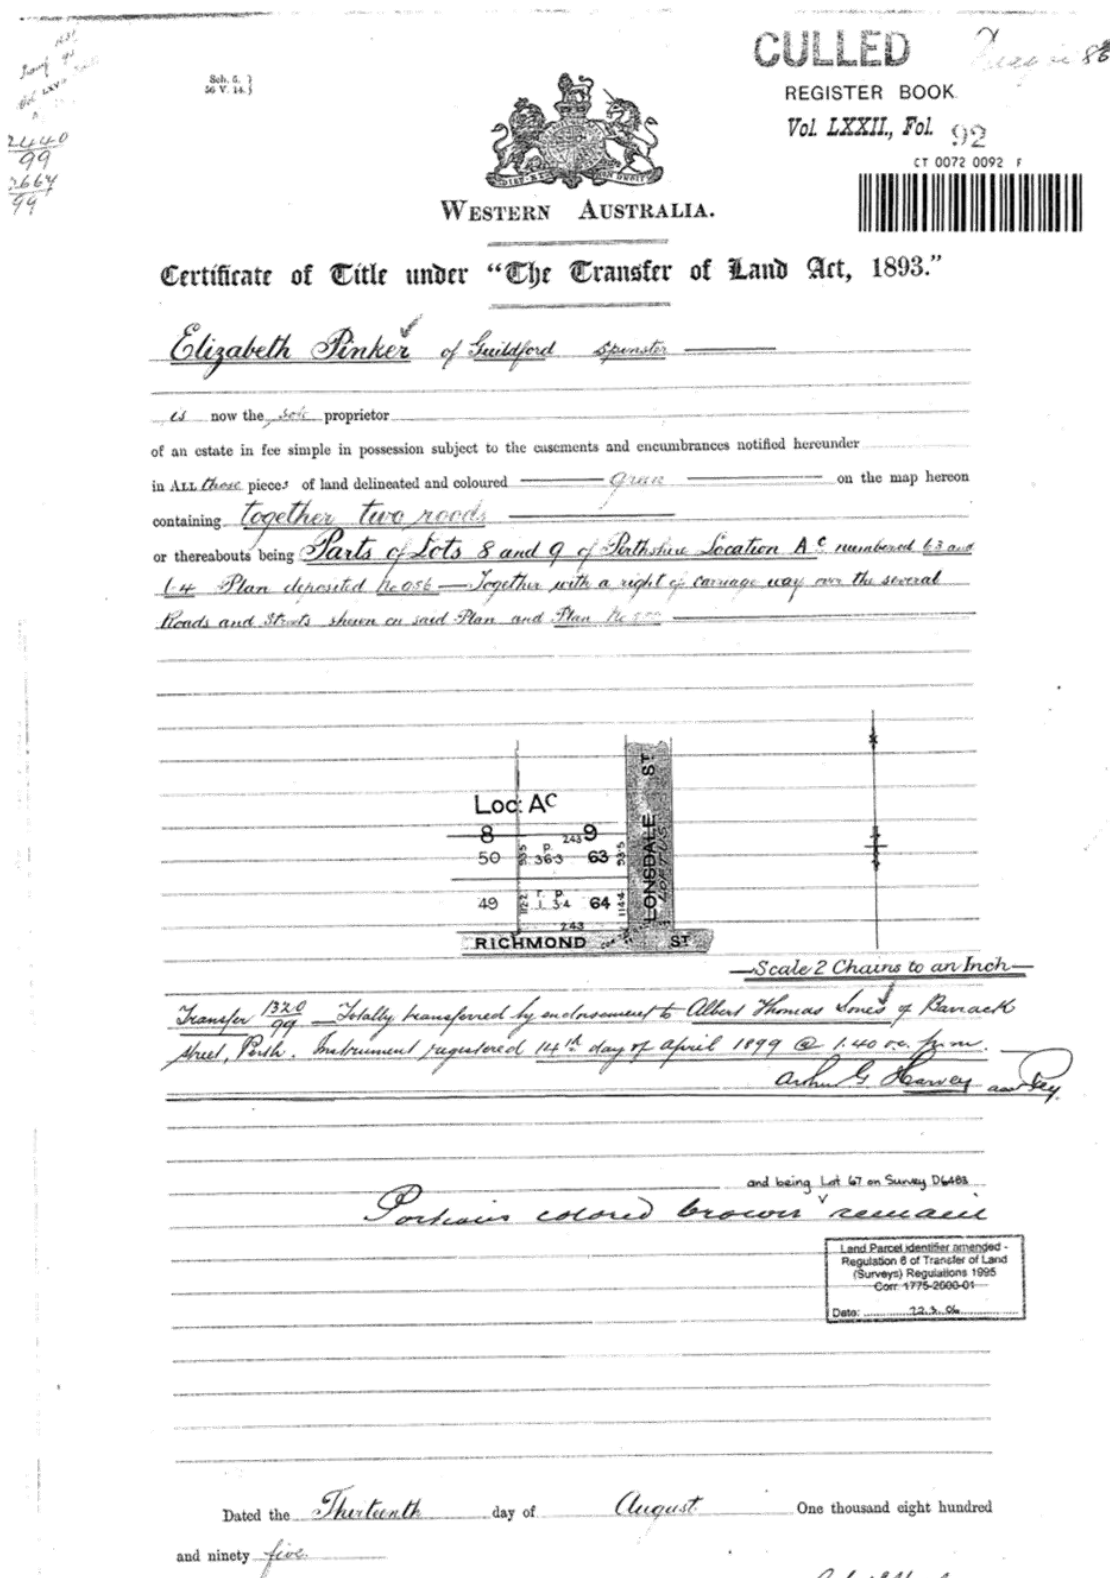 CULLED
REGISTER BOOK
Vol. LXXII., Fol. 92
CT 0072 0092 F
Sch. 5. }
56 V. 14. }
2440
99
2664
99
WESTERN AUSTRALIA.
Certificate of Title under "The Transfer of Land Act, 1893."
Elizabeth Pinker of Guildford Spinster
is now the sole proprietor
of an estate in fee simple in possession subject to the easements and encumbrances notified hereunder
in ALL those pieces of land delineated and coloured green on the map hereon
containing together two roods
or thereabouts being Parts of Lots 8 and 9 of Perthshire Location Ac numbered 63 and
64 Plan deposited No 656 Together with a right of carriage way over the several
Roads and Streets shewn on said Plan and Plan No
Loc: Ac
8 243 9
50 93.5 P. 36.3 63 93.5
49 112.2 r. p. 1. 3.4 64 114.4
243
LONSDALE ST
LOFTUS
RICHMOND ST
Scale 2 Chains to an Inch
Transfer 1320/99 Totally transferred by endorsement to Albert Thomas Jones of Barrack
Street, Perth. Instrument registered 14th day of April 1899 @ 1.40 oc. p.m.
Arthur G. Harvey
and being Lot 67 on Survey D6483
Portions colored brown remain
Land Parcel identifier amended -
Regulation 6 of Transfer of Land
(Surveys) Regulations 1995
Corr. 1775-2000-01
Date: 22.3.06
Dated the Thirteenth day of August One thousand eight hundred
and ninety five